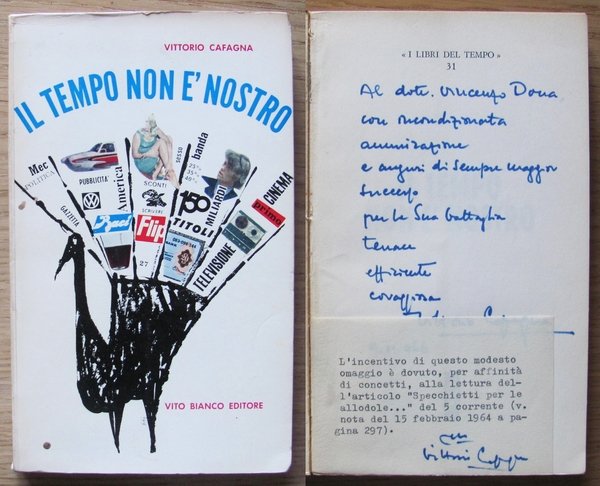 VITTORIO CAFAGNA
IL TEMPO NON E' NOSTRO
Mec
POLITICA
GAZZETTA
PUBBLICITA'
America
SCONTI
SCRIVERE
SESSO
25%
35%
40%
banda
150
TITOLI
MILIARDI
CINEMA
primo
TELEVISIONE
Flip
27
VITO BIANCO EDITORE
« I LIBRI DEL TEMPO »
31
Al dott. Vincenzo Dona
con incondizionata
ammirazione
e auguri di sempre maggior
successo
per la Sua battaglia
tenace
efficiente
coraggiosa
L'incentivo di questo modesto
omaggio è dovuto, per affinità
di concetti, alla lettura del-
l'articolo "Specchietti per le
allodole..." del 5 corrente (v.
nota del 15 febbraio 1964 a pa-
gina 297).
Vittorio Cafagna